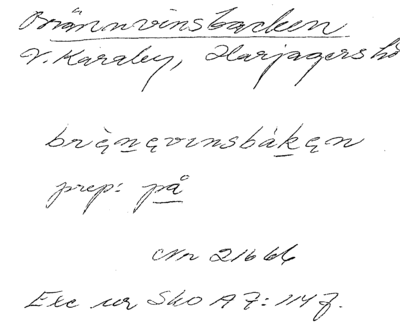 Brännvinsbacken
V. Karaby, Harjagers hd
brìęnęvinsbákęn
prep: på
Nr 21666
Exc ur Sko A 7:114 f.